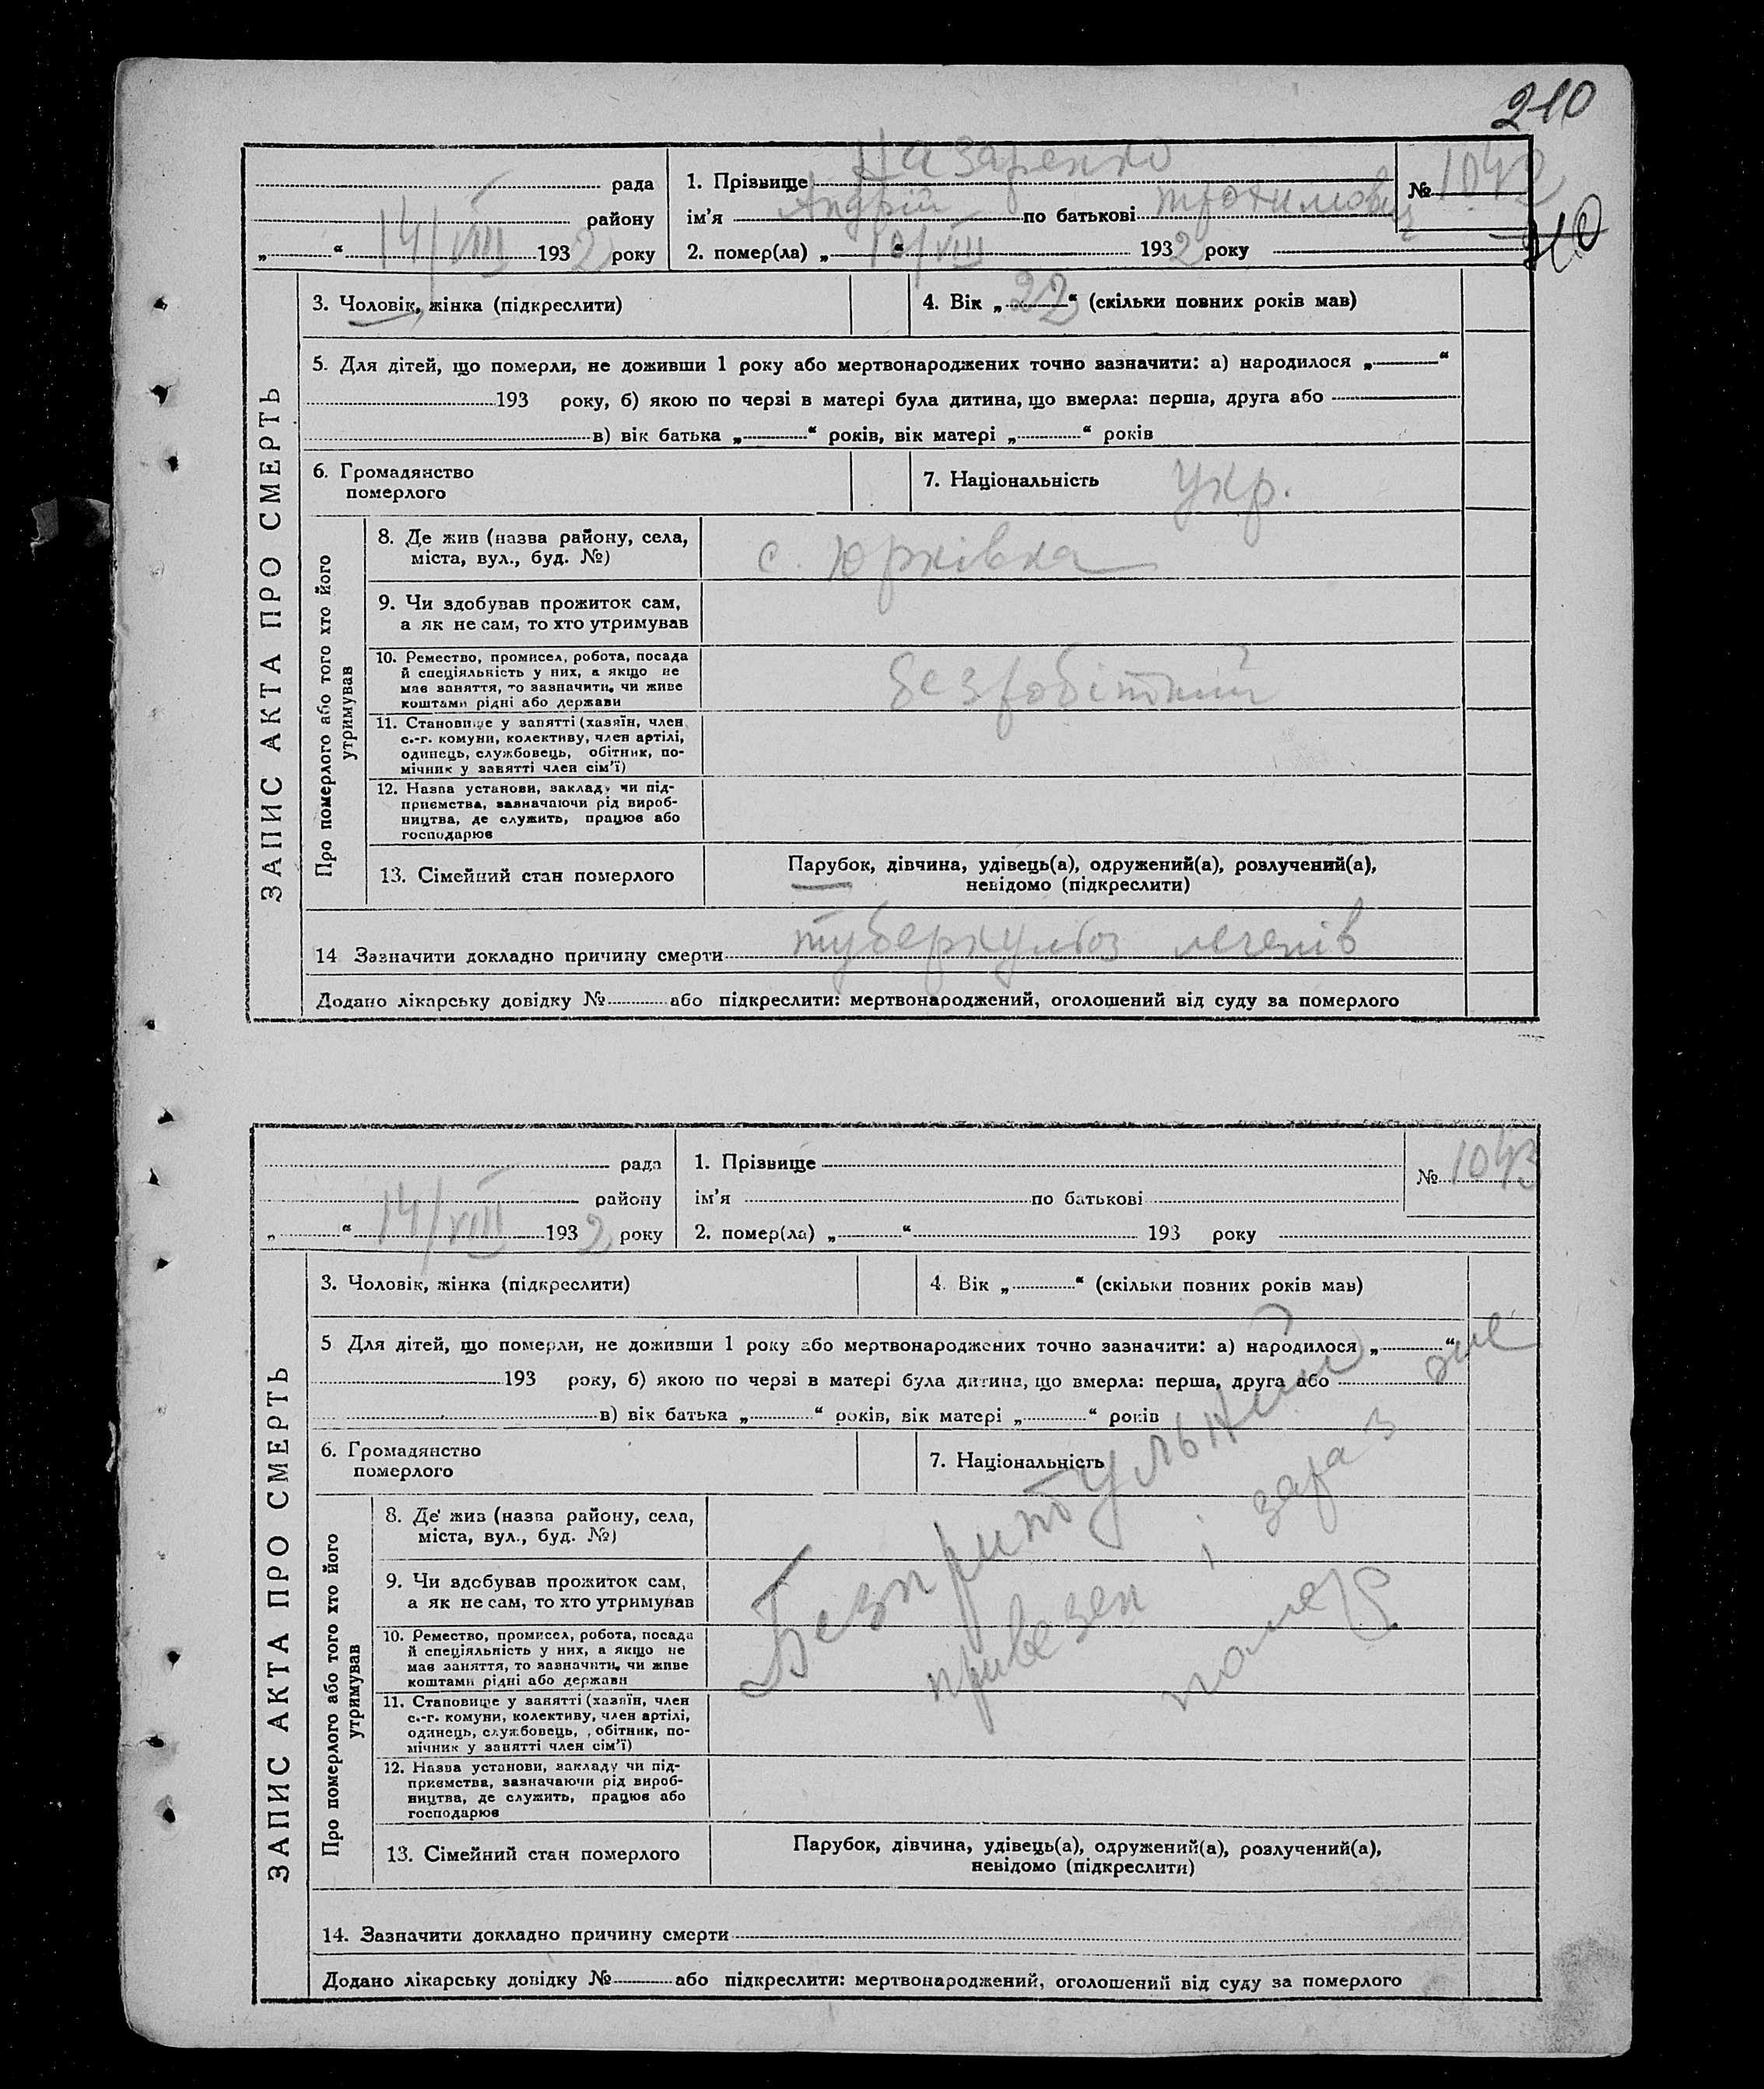 210
рада
району
„ “ 14/VIII 1932 року
1. Прізвище Назаренко
ім’я Андрій по батькові Трохимович
2. помер(ла) „ 10/VIII “ 1932 року
№ 1042
210
ЗАПИС АКТА ПРО СМЕРТЬ
3. Чоловік, жінка (підкреслити)
4. Вік „ 22 “ (скільки повних років мав)
5. Для дітей, що померли, не доживши 1 року або мертвонароджених точно зазначити: а) народилося „ “
193 року, б) якою по черзі в матері була дитина, що вмерла: перша, друга або
в) вік батька „ “ років, вік матері „ “ років
6. Громадянство
померлого
7. Національність укр.
Про померлого або того хто його
утримував
8. Де жив (назва району, села,
міста, вул., буд. №)
с. Юрківка
9. Чи здобував прожиток сам,
а як не сам, то хто утримував
10. Ремество, промисел, робота, посада
й спеціяльність у них, а якщо не
має заняття, то зазначити, чи живе
коштами рідні або держави
безробітний
11. Становище у занятті (хазяїн, член
с.-г. комуни, колективу, член артілі,
одинець, службовець, обітник, по-
мічник у занятті член сім’ї)
12. Назва установи, закладу чи під-
приємства, зазначаючи рід вироб-
ництва, де служить, працює або
господарює
13. Сімейний стан померлого
Парубок, дівчина, удівець(а), одружений(а), розлучений(а),
невідомо (підкреслити)
14 Зазначити докладно причину смерти туберкульоз легенів
Додано лікарську довідку № або підкреслити: мертвонароджений, оголошений від суду за померлого
рада
району
„ “ 14/VIII 1932 року
1. Прізвище
ім’я по батькові
2. помер(ла) „ “ 193 року
№ 1043
ЗАПИС АКТА ПРО СМЕРТЬ
3. Чоловік, жінка (підкреслити)
4. Вік „ “ (скільки повних років мав)
5 Для дітей, що померли, не доживши 1 року або мертвонароджених точно зазначити: а) народилося „ “
193 року, б) якою по черзі в матері була дитина, що вмерла: перша, друга або
в) вік батька „ “ років, вік матері „ “ років
6. Громадянство
померлого
7. Національність
Про померлого або того хто його
утримував
8. Де жив (назва району, села,
міста, вул., буд. №)
9. Чи здобував прожиток сам,
а як не сам, то хто утримував
10. Ремество, промисел, робота, посада
й спеціяльність у них, а якщо не
має заняття, то зазначити, чи живе
коштами рідні або держави
11. Становище у занятті (хазяїн, член
с.-г. комуни, колективу, член артілі,
одинець, службовець, обітник, по-
мічник у занятті член сім’ї)
12. Назва установи, закладу чи під-
приємства, зазначаючи рід вироб-
ництва, де служить, працює або
господарює
Безпритульний
привезен і зараз же
помер
13. Сімейний стан померлого
Парубок, дівчина, удівець(а), одружений(а), розлучений(а),
невідомо (підкреслити)
14. Зазначити докладно причину смерти
Додано лікарську довідку № або підкреслити: мертвонароджений, оголошений від суду за померлого